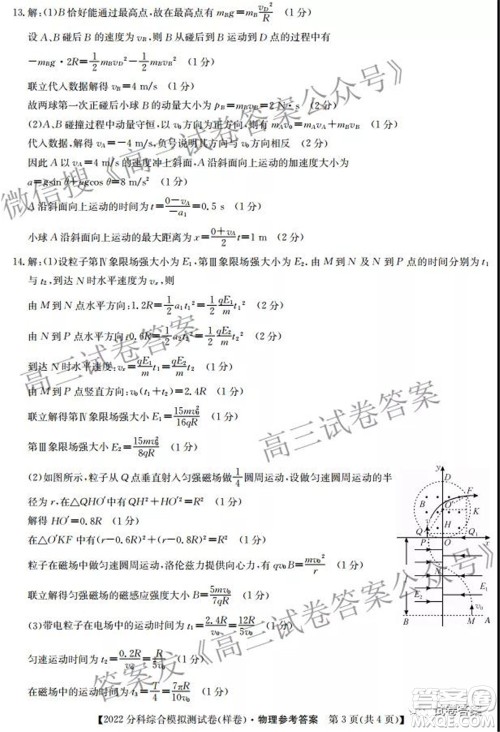 13.解:(1)B恰好能通过最高点,故在最高点有 m_B g=m_B v_D²/R (1分)
设A、B碰后B的速度为v_B,则B从碰后到B运动到D点的过程中有
-m_B g·2R=1/2 m_B v_D²-1/2 m_B v_B² (1分)
联立代入数据解得 v_B=4 m/s (1分)
故两球第一次正碰后小球B的动量大小为 p_B=m_B v_B=2 N·s (2分)
(2)A、B碰撞过程中动量守恒,以v_0方向为正方向,则有 m_A v_0=m_A v_A+m_B v_B
代入数据,解得 m/s,负号说明其方向与 方向 (1分)
因此A以v_A=4 m/s的速度冲上斜面,A沿斜面向上运动的加速度大小为
a=gsin θ+μgcos θ=8 m/s² (1分)
A沿斜面向上运动的时间为 t=(0-v_A)/(-a_1)=0.5 s (1分)
小球A沿斜面向上运动的最大距离为 x=(0+v_A)/2 t=1 m (2分)
14.解:(1)设粒子第Ⅳ象限场强大小为E_1,第Ⅲ象限场强大小为E_2.由M到N及N到P点的时间分别为t_1
与t_2,到达N时水平速度为v_x,则
由M到N点水平方向:1.2R=1/2 a_1t_1²=1/2 qE_1/m t_1² (2分)
由N到P点水平方向:0.6R=1/2 a_2t_2²=1/2 qE_2/m t_2² (2分)
到达N时水平速度:v_x=qE_1/m t_1=qE_2/m t_2
由M到P点竖直方向:v_0(t_1+t_2)=2.4R (1分)
联立解得第Ⅳ象限场强大小 E_1=15mv_0²/16qR (1分)
第Ⅲ象限场强大小 E_2=15mv_0²/8qR (1分)
(2)如图所示,粒子从Q点垂直射入匀强磁场做1/4圆周运动,设做匀速圆周运动的半
径为r,在△QHO′中有 QH²+HO′²=R² (1分)
解得 HO′=0.8R (1分)
在△O′KF中有(r-0.6R)²+(r-0.8R)²=R² (1分)
粒子在磁场中做匀速圆周运动,洛伦兹力提供向心力,有 qv_0B=mv_0²/r (1分)
联立解得匀强磁场的磁感应强度大小 B=5mv_0/7qR (1分)
(3)带电粒子在电场中的运动时间为 t_1=2.4R/v_0=12R/5v_0 (1分)
匀速运动时间为 t_2=0.2R/v_0=R/5v_0 (1分)
在磁场中的运动时间为 t_3=T/4=7πR/10v_0 (1分)
y
D
F
O′
K
H
Q
P
O
x
N
E_2
E_1
v_0
B
M
A
【2022分科综合模拟测试卷(样卷)·物理参考答案 第3页(共4页)】
微信搜《高三试卷答案公众号》
高三试卷答案
高三试卷答案
答案发《高三试卷答案公众号》
试卷答案